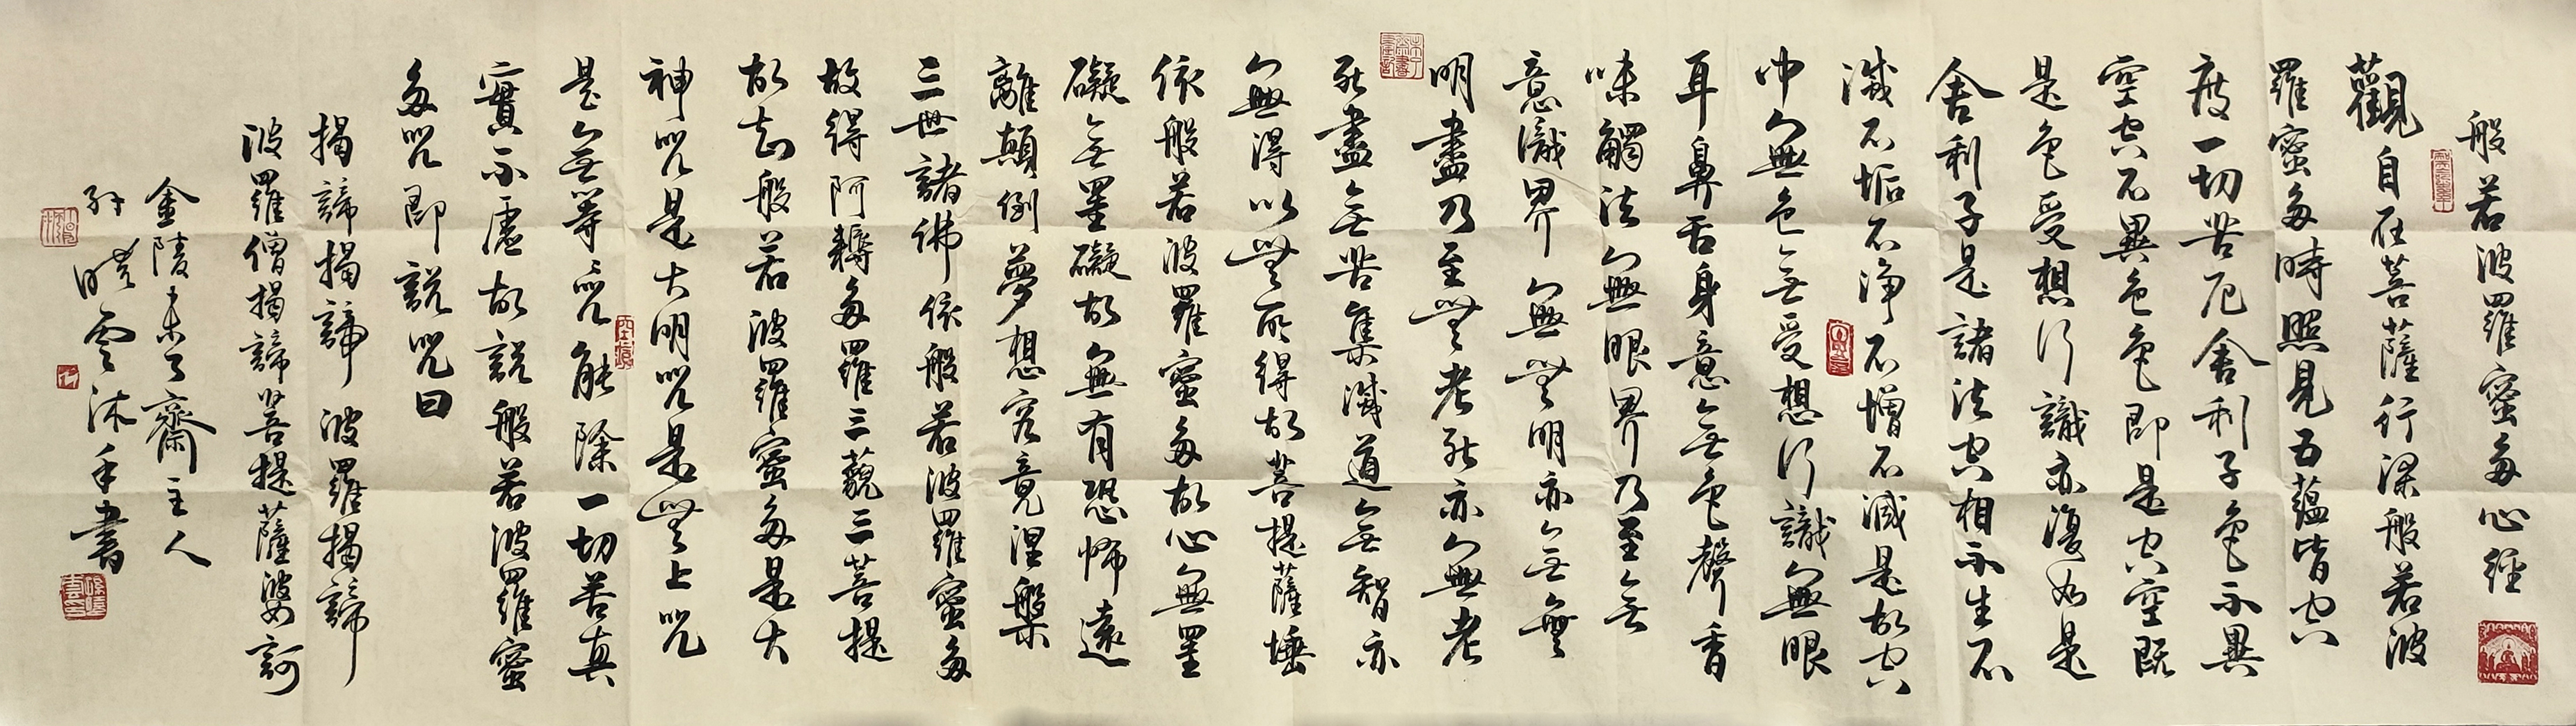 般若波羅蜜多心經
觀自在菩薩行深般若波
羅蜜多時照見五蘊皆空
度一切苦厄舍利子色不異
空空不異色色即是空空既
是色受想行識亦復如是
舍利子是諸法空相不生不
滅不垢不淨不增不減是故空
中無色無受想行識無眼
耳鼻舌身意無色聲香
味觸法無眼界乃至無
意識界無無明亦無無
明盡乃至無老死亦無老
死盡無苦集滅道無智亦
無得以無所得故菩提薩埵
依般若波羅蜜多故心無罣
礙無罣礙故無有恐怖遠
離顛倒夢想究竟涅槃
三世諸佛依般若波羅蜜多
故得阿耨多羅三藐三菩提
故知般若波羅蜜多是大
神咒是大明咒是無上咒
是無等等咒能除一切苦真
實不虛故說般若波羅蜜
多咒即說咒曰
揭諦揭諦 波羅揭諦
波羅僧揭諦菩提薩婆訶
金陵未了齋主人
孫曉雲沐手書